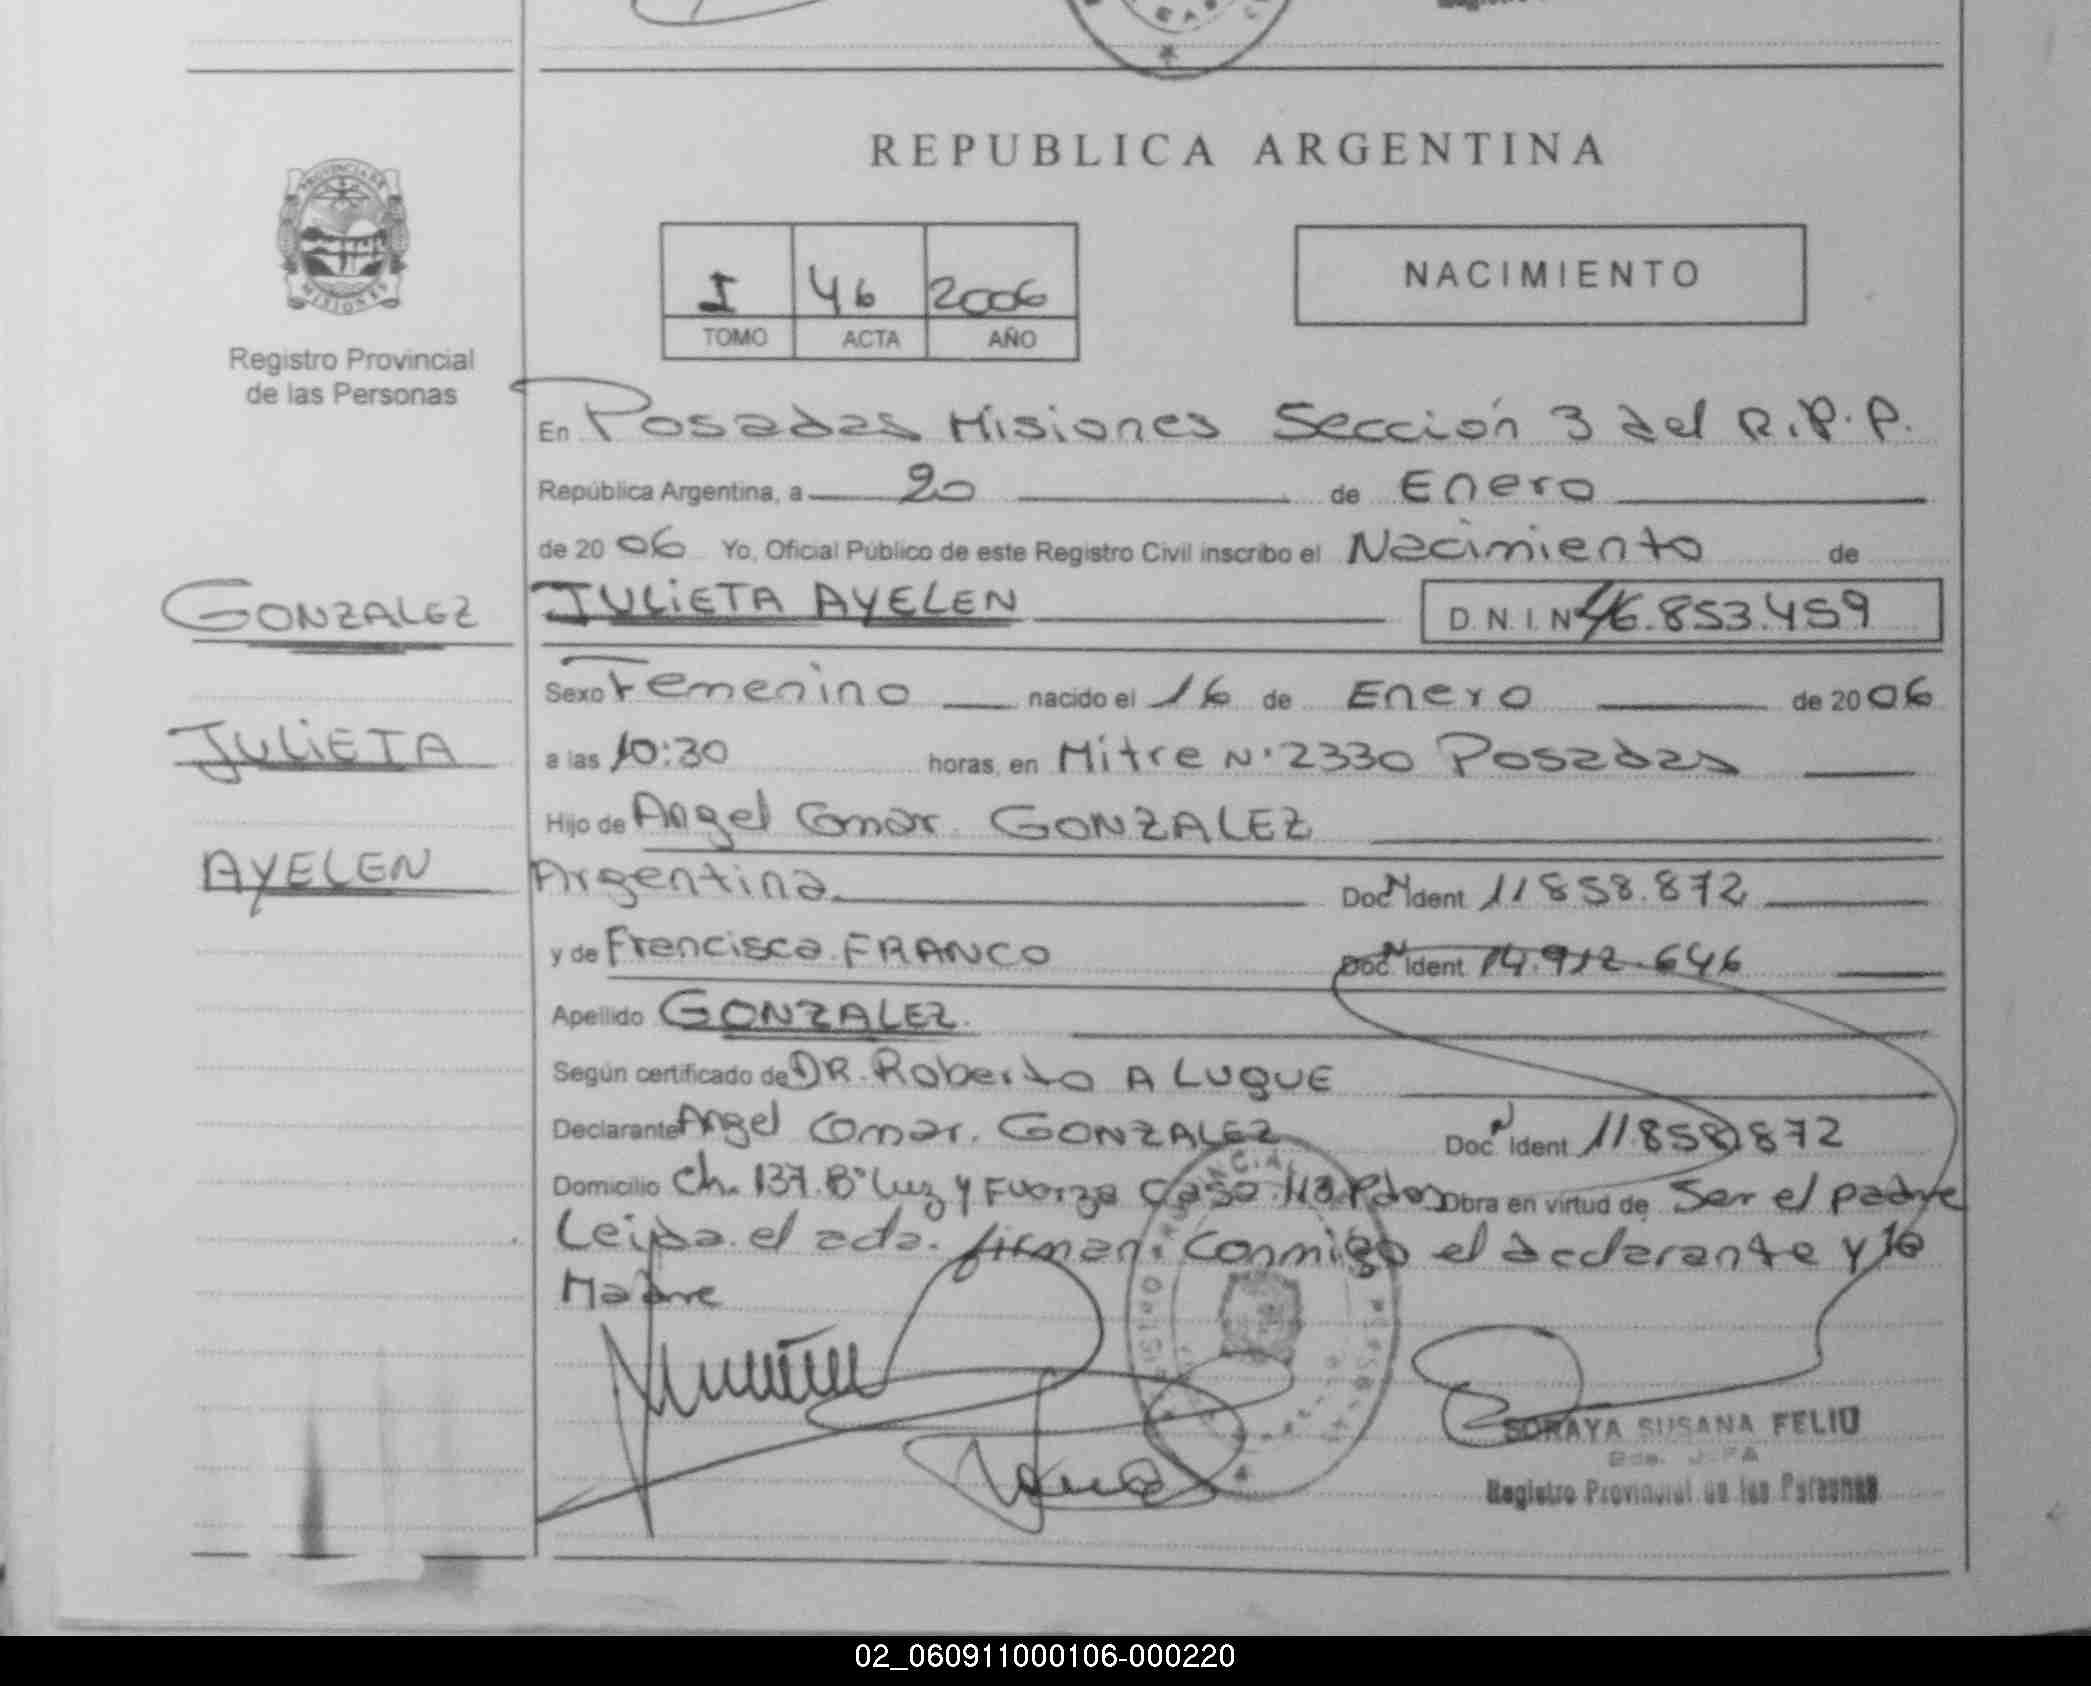 REPUBLICA ARGENTINA
PROVINCIA DE MISIONES
Registro Provincial
de las Personas
I 46 2006
TOMO ACTA AÑO
NACIMIENTO
En Posadas Misiones Sección 3 del R.P.P.
República Argentina, a 20 de Enero
de 20 06 Yo, Oficial Público de este Registro Civil inscribo el Nacimiento de
GONZALEZ
JULIETA AYELEN D.N.I. Nº 46.853.459
Sexo Femenino nacido el 16 de Enero de 20 06
JULIETA
a las 10:30 horas, en Mitre Nº 2330 Posadas
Hijo de Angel Omar GONZALEZ
AYELEN
Argentina Doc Nº Ident 11858.872
y de Francisca FRANCO Doc Nº Ident 14.912.646
Apellido GONZALEZ
Según certificado de DR. Roberto A LUQUE
Declarante Angel Omar GONZALEZ Doc Nº Ident 11.858.872
Domicilio Ch. 137 Bº Luz y Fuerza Casa 113 Pdas Obra en virtud de Ser el padre
Leida el acta firman Conmigo el declarante y la
Madre
SORAYA SUSANA FELIU
Registro Provincial de las Personas
02_060911000106-000220